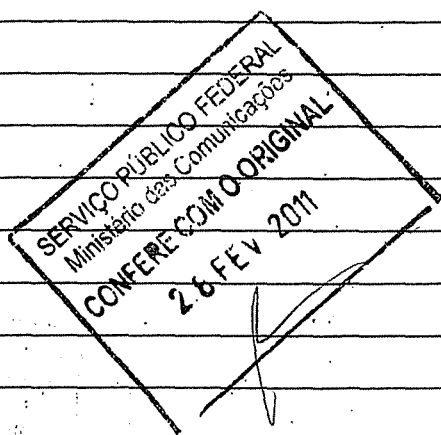 SERVIÇO PÚBLICO FEDERAL
Ministério das Comunicações
CONFERE COM O ORIGINAL
2.8 FEV 2011